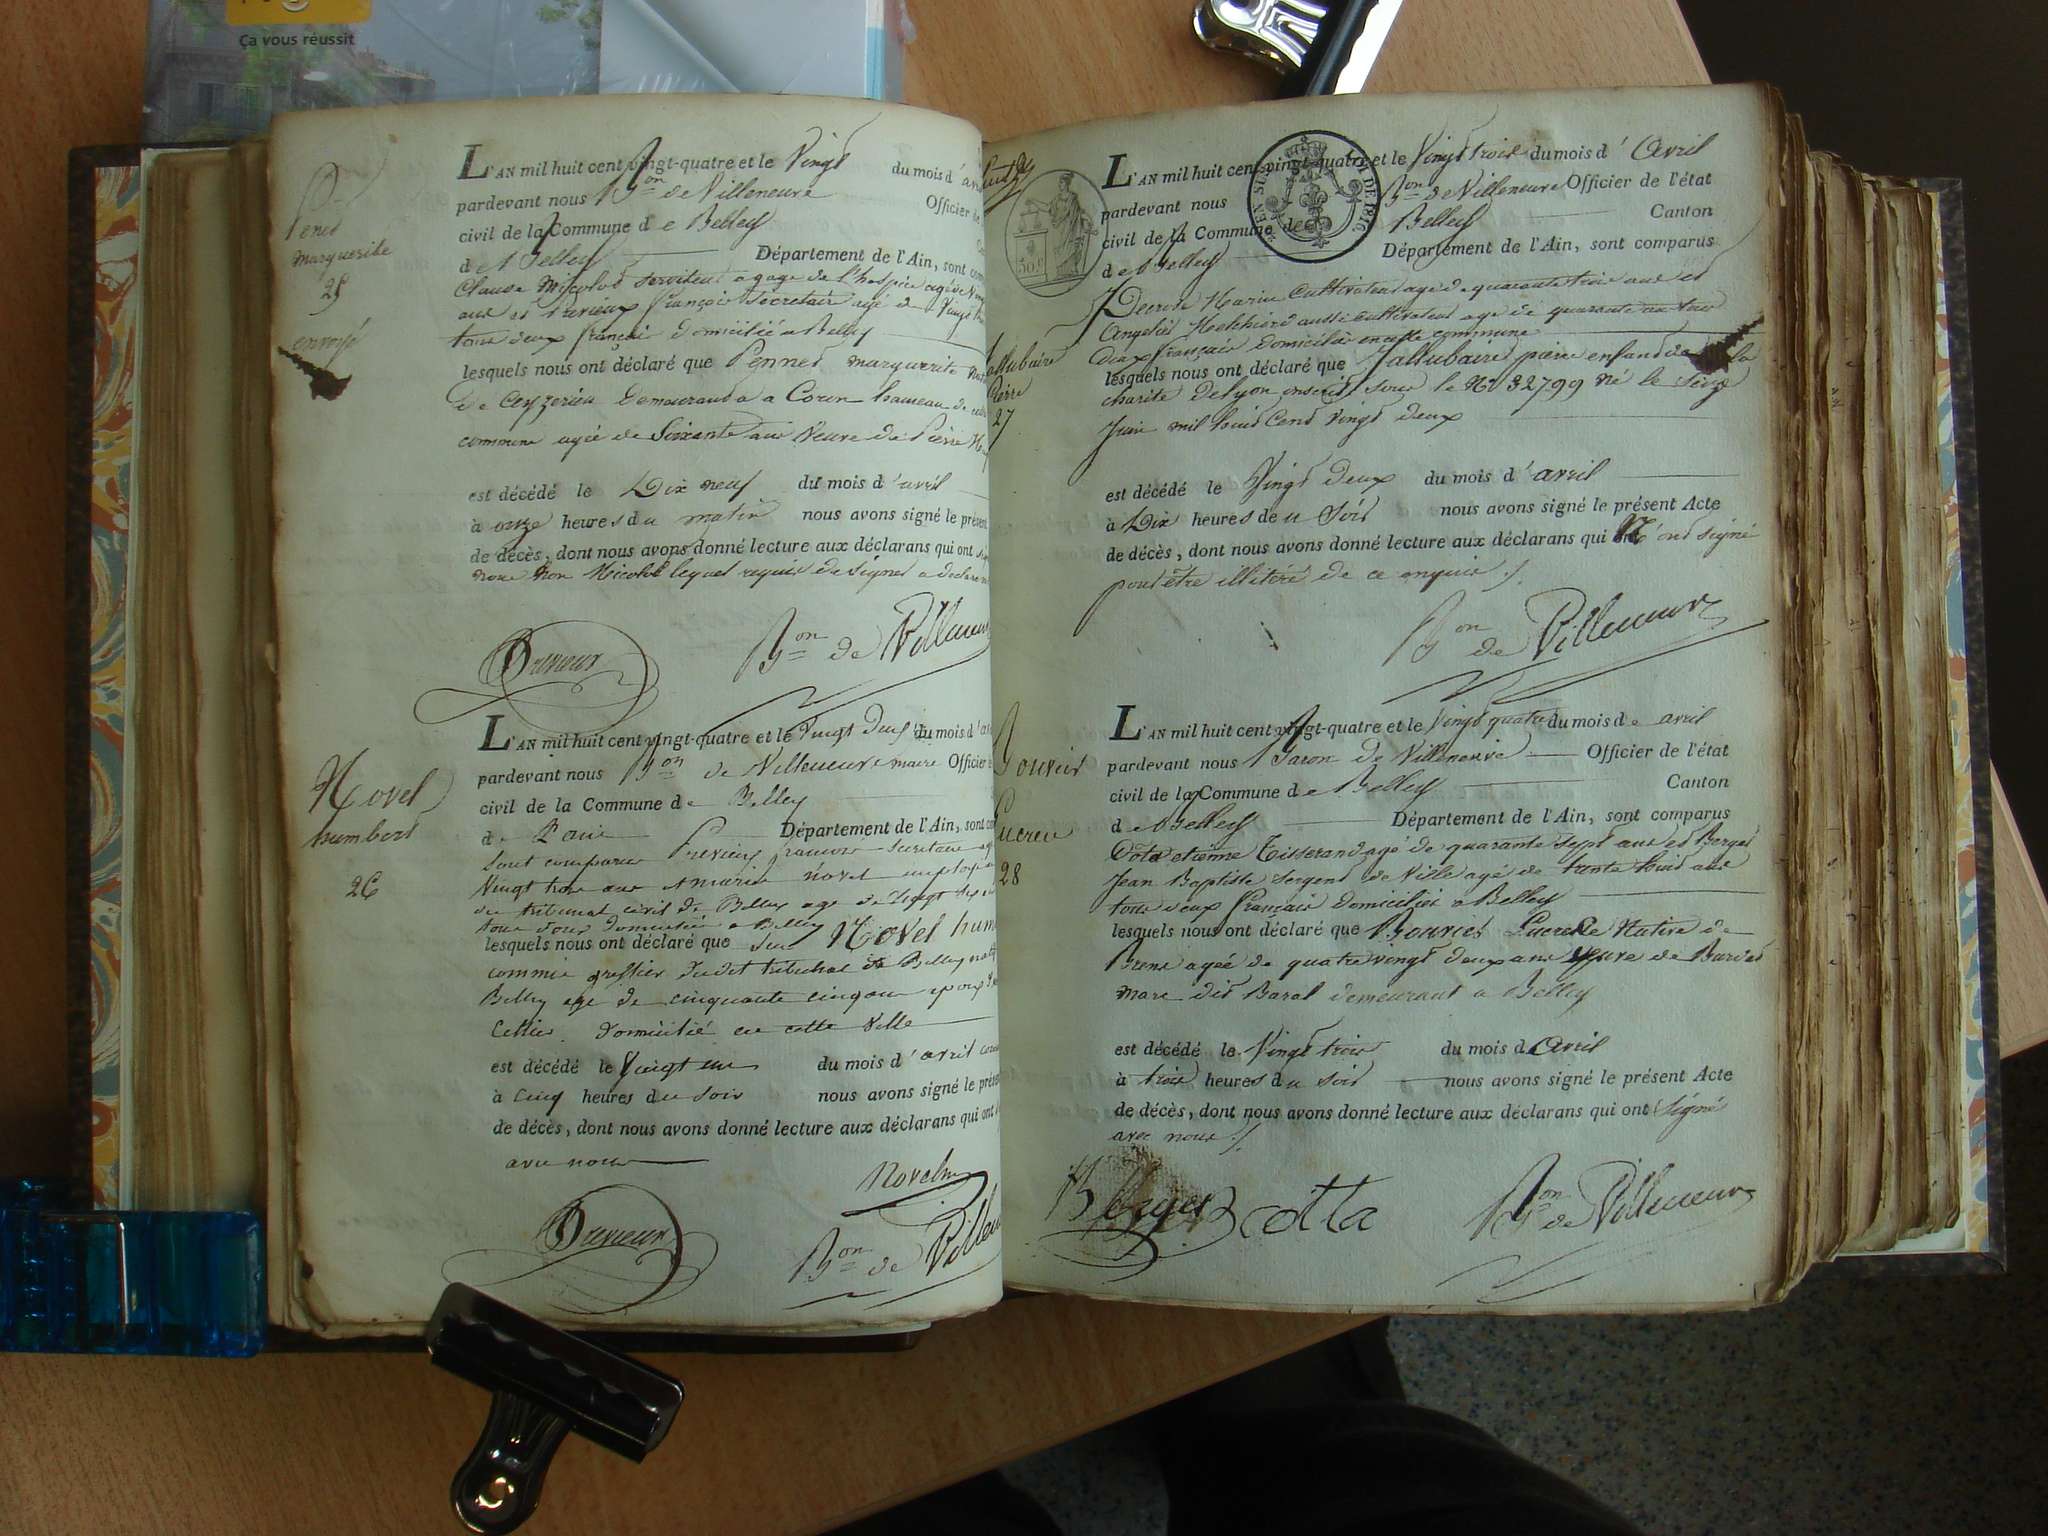 Ça vous réussit
Penet
marguerite
25
envoyé
L'AN mil huit cent vingt-quatre et le Vingt du mois d'
pardevant nous Bon de Villeneuve Officier
civil de la Commune de Belley
de Belley Département de l'Ain, sont
Claude serviteur a gage de l'hospice agé de
ans et françois secretaire agé de Vingt
tous deux français domicilié a Belley
lesquels nous ont déclaré que Pennet marguerite
de Ceyzerieu demeurant a Coron hameau de
commune agée de Soixante ans Veuve de Pierre
est décédé le Dix neuf du mois d'avril
à onze heures du matin nous avons signé le présent
de décès, dont nous avons donné lecture aux déclarans qui ont
nous non lequel requis de signer a declaré
Bon de Villeneuve
Novel
humbert
26
L'AN mil huit cent vingt-quatre et le Vingt deux du mois d'
pardevant nous Bon de Villeneuve maire Officier
civil de la Commune de Belley
de Département de l'Ain, sont
sont comparus françois secretaire
Vingt trois ans novel employé
du tribunal civil de Belley age de Vingt
tous deux domicilié a Belley
lesquels nous ont déclaré que Novel hum
commis greffier dudit tribunal de Belley
Belley age de cinquante cinq ans epoux
domicilié en cette Ville
est décédé le Vingt un du mois d'avril
à cinq heures du soir nous avons signé le présent
de décès, dont nous avons donné lecture aux déclarans qui ont
avec nous
Bon de Villeneuve
Jallubaire
Pierre
27
L'AN mil huit cent vingt-quatre et le Vingt trois du mois d'Avril
pardevant nous Bon de Villeneuve Officier de l'état
civil de la Commune de Belley Canton
de Belley Département de l'Ain, sont comparus
Marin Cultivateur agé de quarante trois ans et
Melchior aussi cultivateur agé de quarante
deux français domiciliés en cette commune
lesquels nous ont déclaré que Jallubaire pierre enfant de la
charité de lyon inscrit sous le No 32799 né le seize
Juin mil huit Cent Vingt deux
est décédé le Vingt deux du mois d'avril
à Dix heures du soir nous avons signé le présent Acte
de décès, dont nous avons donné lecture aux déclarans qui N'ont signé
pour être illitéré de ce enquis
Bon de Villeneuve
28
L'AN mil huit cent vingt-quatre et le Vingt quatre du mois de avril
pardevant nous Baron de Villeneuve Officier de l'état
civil de la Commune de Belley Canton
de Belley Département de l'Ain, sont comparus
Cota etienne Tisserand agé de quarante sept ans et Berger
Jean Baptiste Sergent de Ville agé de trente huit ans
tous deux français domiciliés a Belley
lesquels nous ont déclaré que Lucrece Native de
Brens agée de quatre vingt deux ans Veuve de
marc dit Baral demeurant a Belley
est décédé le Vingt trois du mois d'Avril
à trois heures du soir nous avons signé le présent Acte
de décès, dont nous avons donné lecture aux déclarans qui ont signé
avec nous
Berger Cotta Bon de Villeneuve